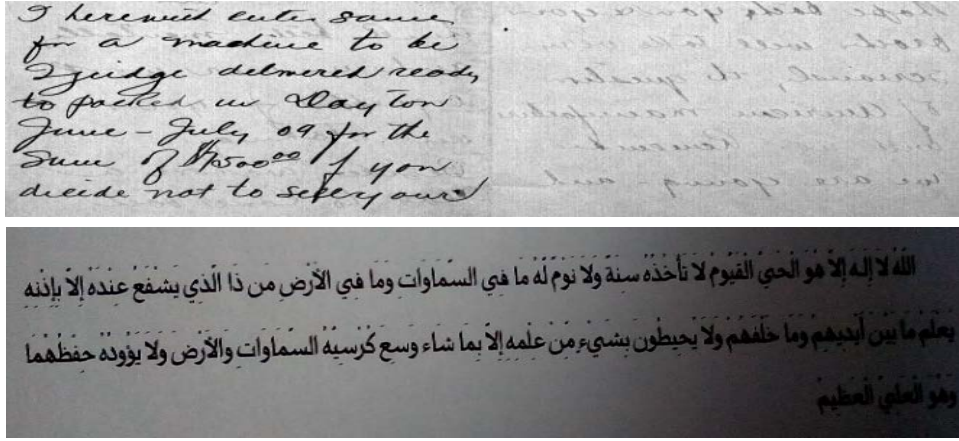 I herewith enter same
for a machine to be
I judge delivered ready
to packed in Dayton
June - July 09 for the
sum of $7500⁰⁰ If you
decide not to sell yours
hope both you &
we are young and
اللّهُ لاَ إِلَـهَ إِلاَّ هُوَ الْحَيُّ الْقَيُّومُ لاَ تَأْخُذُهُ سِنَةٌ وَلاَ نَوْمٌ لَّهُ مَا فِي السَّمَاوَاتِ وَمَا فِي الأَرْضِ مَن ذَا الَّذِي يَشْفَعُ عِنْدَهُ إِلاَّ بِإِذْنِهِ
يَعْلَمُ مَا بَيْنَ أَيْدِيهِمْ وَمَا خَلْفَهُمْ وَلاَ يُحِيطُونَ بِشَيْءٍ مِّنْ عِلْمِهِ إِلاَّ بِمَا شَاء وَسِعَ كُرْسِيُّهُ السَّمَاوَاتِ وَالأَرْضَ وَلاَ يَؤُودُهُ حِفْظُهُمَا
وَهُوَ الْعَلِيُّ الْعَظِيمُ